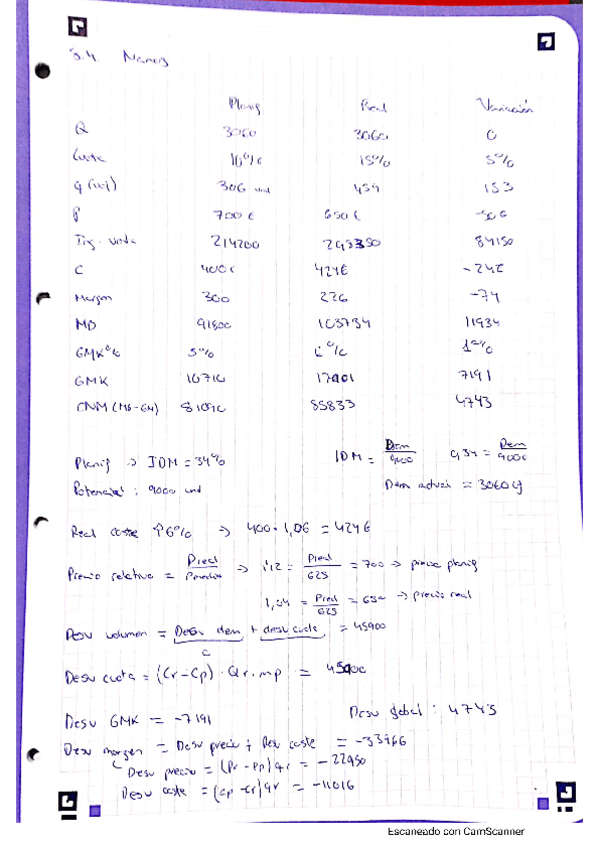 3.4. Nanos
Planif Real Variación
Q 3060 3060 0
Cuota 10% 15% 5%
q (uf) 306 und 459 153
P 700 € 650 € -50 €
Ing. venta 214200 298350 84150
C 400 € 424 € -24 €
Margen 300 226 -74
MB 91800 103734 11934
GMK% 5% 6% 1%
GMK 10710 17901 7191
CNM (MB-GM) 81090 85833 4743
Planif → IDM = 34% IDM = Dem/9000 0,34 = Dem/9000
Potencial : 9000 und Dem actual = 3060 q
Real coste ↑6% → 400 · 1,06 = 424 €
Precio relativo = Preal/Pmedio → 1'12 = Preal/625 = 700 → precio planif
1,04 = Preal/625 = 650 → precio real
Desv volumen = Desv dem + desv cuota = 45900
0
Desv cuota = (Cr - Cp) · Qr · mp = 45900
Desv GMK = -7191 Desv global : 4743
Desv margen = Desv precio + Des coste = -33966
Desv precio = (Pr - Pp) qr = -22950
Desv coste = (cp - cr) qr = -11016
Escaneado con CamScanner